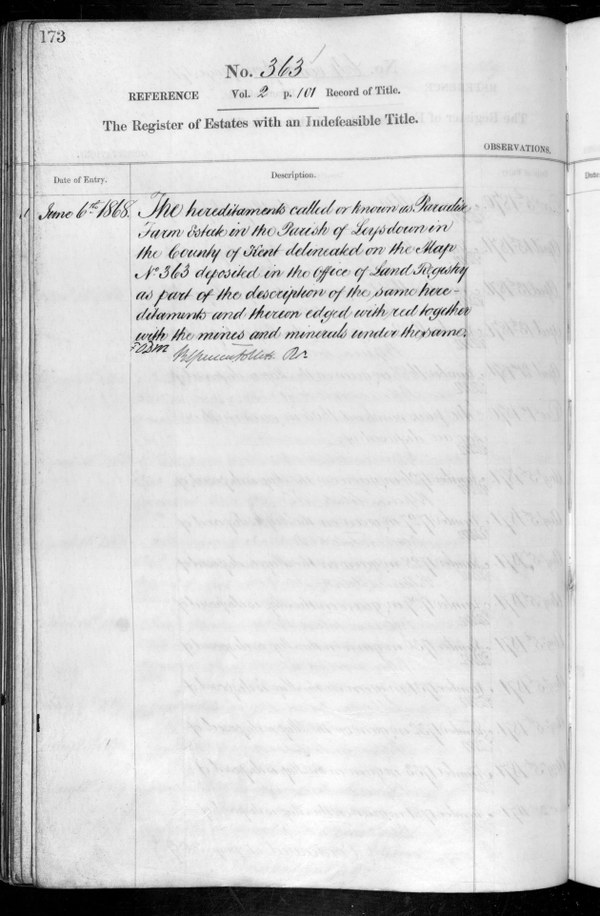 173
No. 363
REFERENCE Vol. 2 p. 101 Record of Title.
The Register of Estates with an Indefeasible Title.
OBSERVATIONS.
Date of Entry.
Description.
1 June 6th 1868. The hereditaments called or known as Paradise
Farm Estate in the Parish of Leysdown in
the County of Kent delineated on the Map
No 363 deposited in the Office of Land Registry
as part of the description of the same here-
ditaments and thereon edged with red together
with the mines and minerals under the same.